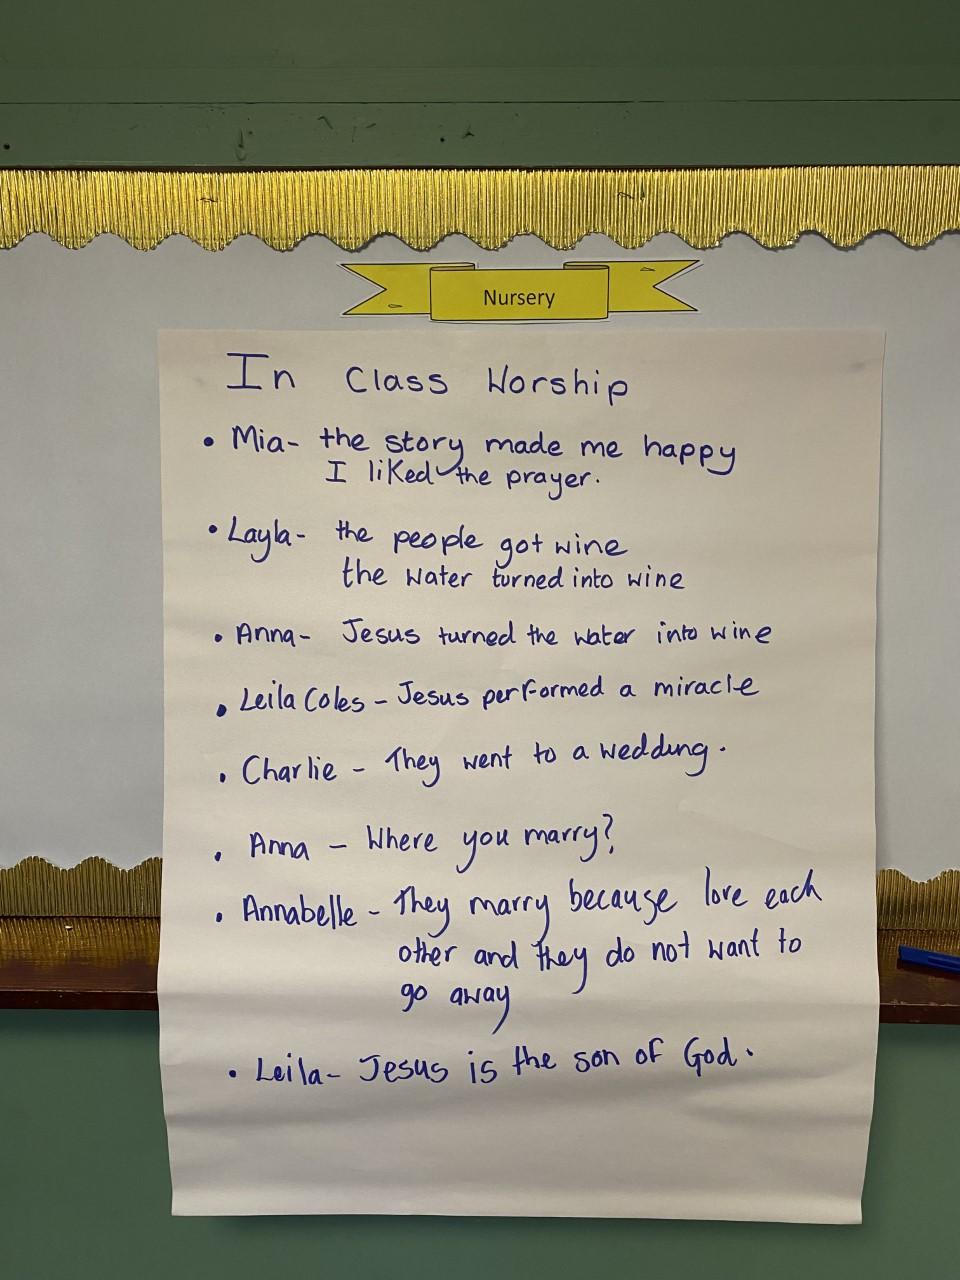 Nursery
In Class Worship
• Mia- the story made me happy
I liked the prayer.
• Layla- the people got wine
the water turned into wine
• Anna- Jesus turned the water into wine
• Leila Coles - Jesus performed a miracle
• Charlie - They went to a wedding.
• Anna - Where you marry?
• Annabelle - They marry because love each
other and they do not want to
go away
• Leila- Jesus is the son of God.